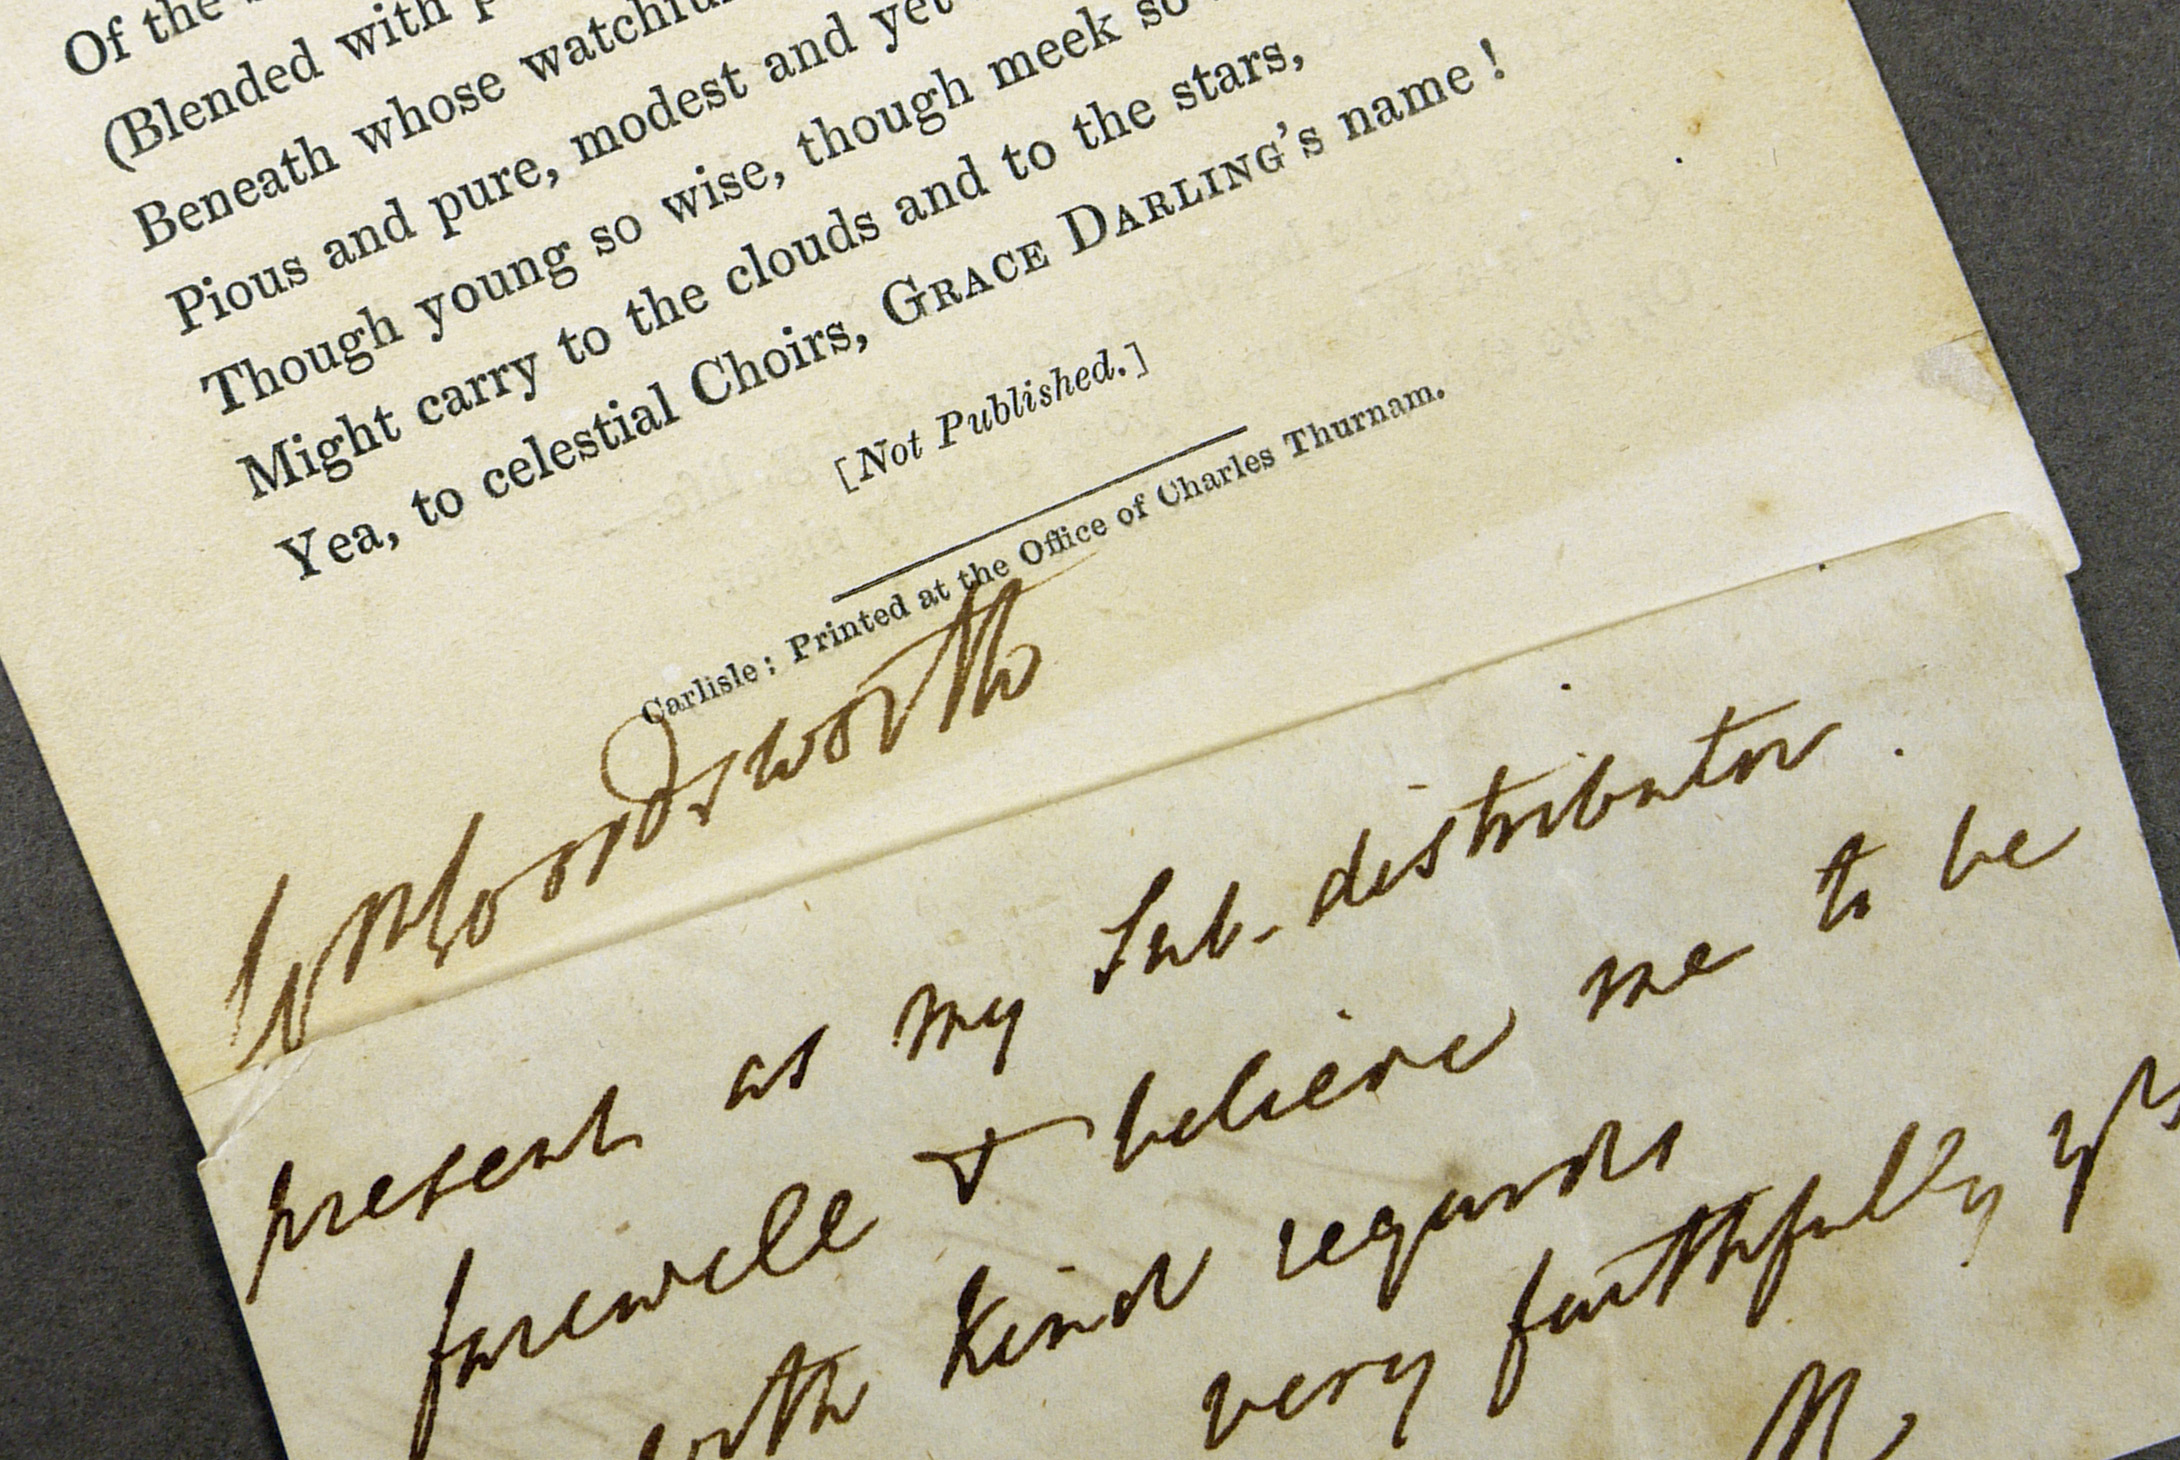 Of the
(Blended with
Beneath whose watchful
Pious and pure, modest and yet
Though young so wise, though meek so
Might carry to the clouds and to the stars,
Yea, to celestial Choirs, GRACE DARLING's name!
[Not Published.]
Carlisle: Printed at the Office of Charles Thurnam.
Wm Wordsworth
present as my Sub-distributor.
farewell & believe me to be
with kind regards
very faithfully yrs